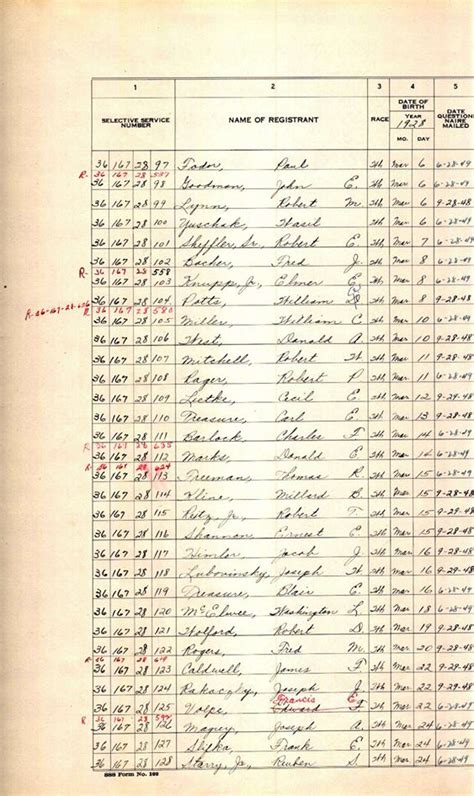 1 2 3 4 5
SELECTIVE SERVICE NUMBER NAME OF REGISTRANT RACE DATE OF BIRTH DATE QUESTIONNAIRE MAILED
YEAR 1928
MO. DAY
36 167 28 97 Fodor, Paul Wh Mar 6 6-28-49
R- 36 167 28 597
36 167 28 98 Goodman, John E. Wh Mar 6 6-28-49
36 167 28 99 Lynn, Robert M. Wh Mar 6 9-28-48
36 167 28 100 Yuschak, Wasil Wh Mar 6 9-28-48
36 167 28 101 Sheffler, Sr., Robert E. Wh Mar 7 6-28-49
36 167 28 102 Bacher, Fred J. Wh Mar 8 6-28-49
R- 36 167 28 558
36 167 28 103 Knupp, Jr., Elmer E. Wh Mar 8 6-28-49
36 167 28 104 Potts, William D. Wh Mar 8 9-28-48
R 36 167 28 580
36 167 28 105 Miller, William C. Wh Mar 10
36 167 28 106 West, Donald A. Wh Mar 10 9-28-48
36 167 28 107 Mitchell, Robert H. Wh Mar 11 9-28-48
36 167 28 108 Rager, Robert P. Wh Mar 11 6-28-49
36 167 28 109 Lutke, Cecil E. Wh Mar 12 9-29-48
36 167 28 110 Treasure, Carl E. Wh Mar 13 9-28-48
36 167 28 111 Barlock, Charles F. Wh Mar 14 6-28-49
R 36 167 28 635
36 167 28 112 Marks, Donald E. Wh Mar 14 6-28-49
R- 36 167 28 624
36 167 28 113 Freeman, Thomas R. Wh Mar 15 6-28-49
36 167 28 114 Kline, Millard B. Wh Mar 15 9-28-48
36 167 28 115 Reitz, Jr., Robert T. Wh Mar 15 9-28-48
36 167 28 116 Shannon, Ernest E. Wh Mar 15 9-28-48
36 167 28 117 Himler, Jacob J. Wh Mar 16 9-28-48
36 167 28 118 Lubovinsky, Joseph H. Wh Mar 16 9-29-48
36 167 28 119 Treasure, Blair E. Wh Mar 16 6-28-49
36 167 28 120 McElwee, Washington L. Wh Mar 18 6-28-49
36 167 28 121 Holford, Robert D. Wh Mar 19 9-28-48
36 167 28 122 Rogers, Fred M. Wh Mar 20 9-28-48
R- 36 167 28 619
36 167 28 123 Caldwell, James F. Wh Mar 22 9-29-48
36 167 28 124 Rakaczky, Joseph J. Wh Mar 22 9-29-48
Francis E.
36 167 28 125 Volpe, Edward Wh Mar 22 6-28-49
R 36 167 28
36 167 28 126 Magney, Joseph A. Wh Mar 24 6-28-49
36 167 28 127 Slipka, Frank E. Wh Mar 24 6-28-49
36 167 28 128 Starry, Jr., Reuben S. Wh Mar 24 6-28-49
SSS Form No. 102